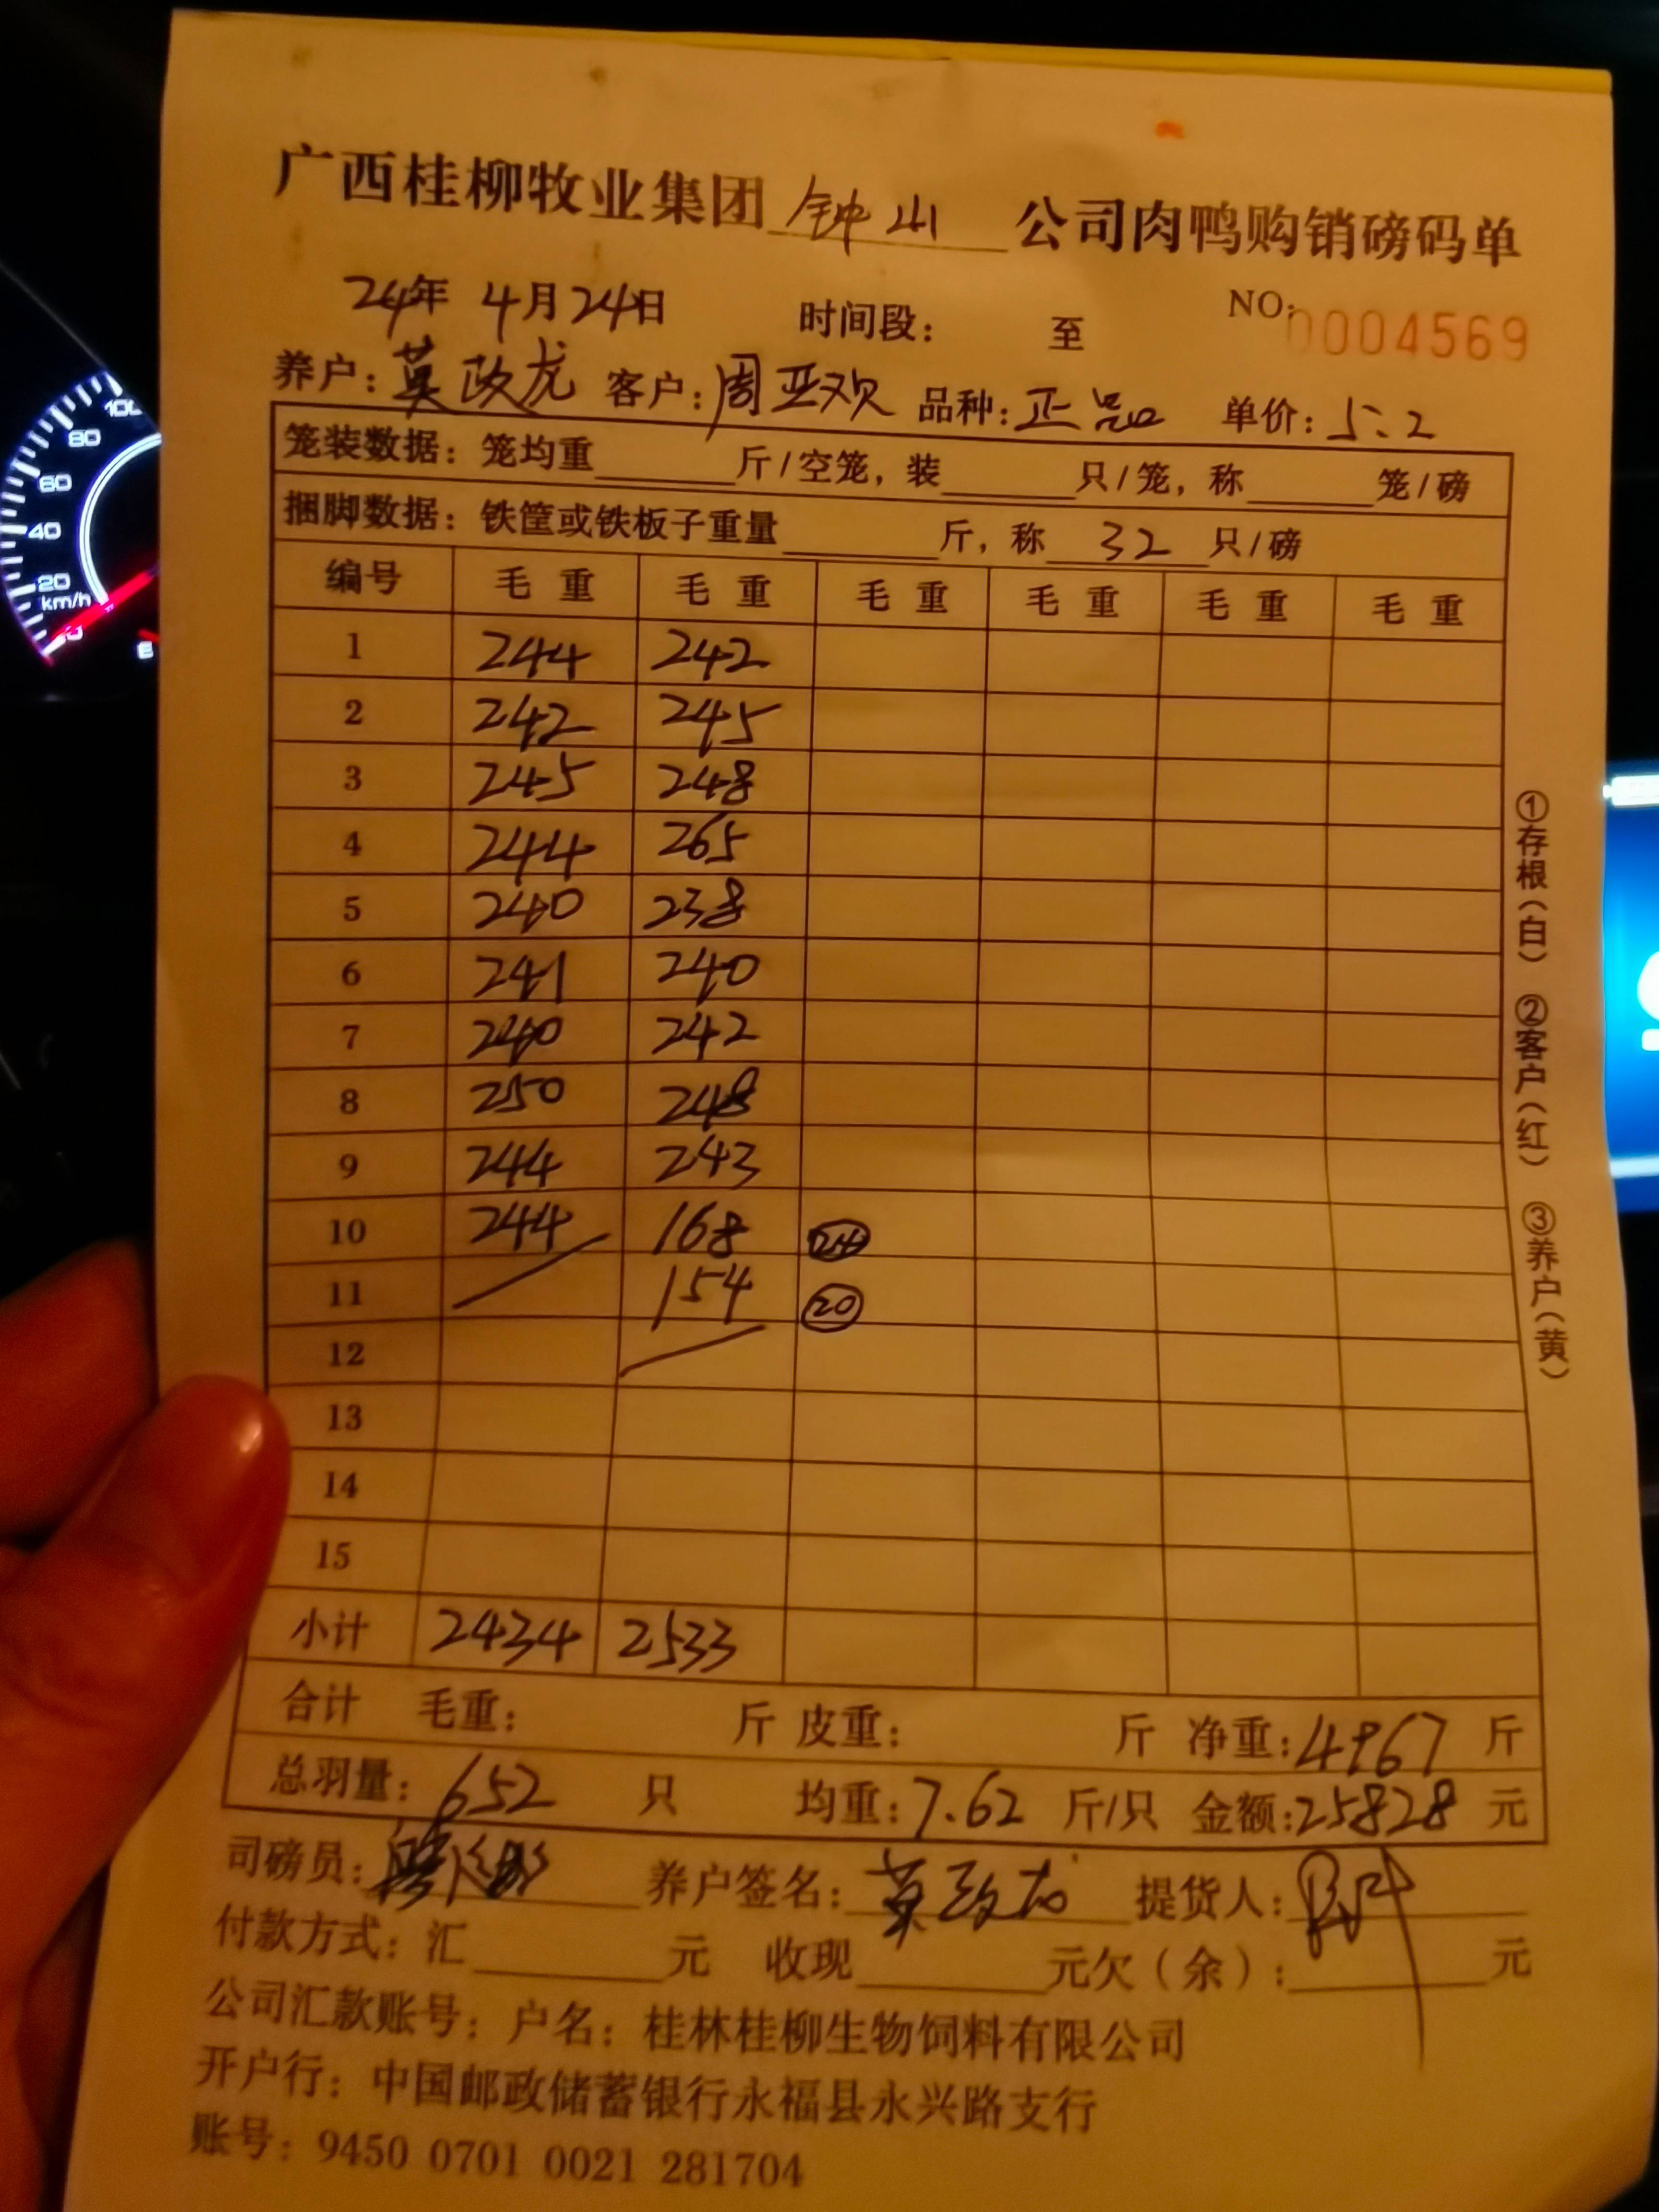 广西桂柳牧业集团 钟山 公司肉鸭购销磅码单
24年 4月24日 时间段： 至 NO: 0004569
养户：莫政龙 客户：周亚欢 品种：正品 单价：5.2
笼装数据：笼均重 斤/空笼，装 只/笼，称 笼/磅
捆脚数据：铁筐或铁板子重量 斤，称 32 只/磅
编号 毛重 毛重 毛重 毛重 毛重 毛重
1 244 242
2 242 245
3 245 248
4 244 265
5 240 238
6 241 240
7 240 242
8 250 248
9 244 243
10 244 168 24
11 154 20
12
13
14
15
小计 2434 2533
合计 毛重： 斤 皮重： 斤 净重：4967 斤
总羽量：652 只 均重：7.62 斤/只 金额：25828 元
司磅员： 养户签名：莫政龙 提货人：
付款方式：汇 元 收现 元欠（余）： 元
公司汇款账号：户名：桂林桂柳生物饲料有限公司
开户行：中国邮政储蓄银行永福县永兴路支行
账号：9450 0701 0021 281704
①存根（白） ②客户（红） ③养户（黄）
100
80
60
40
20
km/h